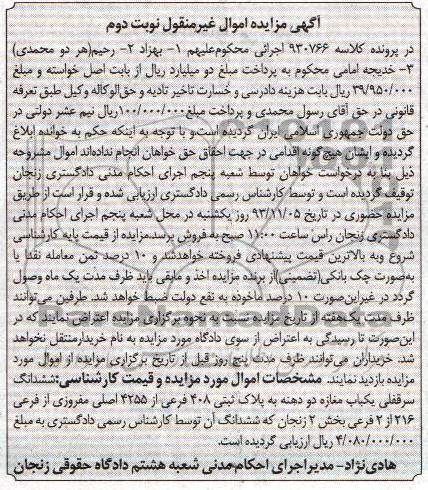 آگهی مزایده اموال غیرمنقول نوبت دوم
در پرونده کلاسه ۹۳۰۷۶۶ اجرائی محکوم‌علیهم ۱- بهزاد ۲- رحیم(هر دو محمدی)
۳- خدیجه امامی محکوم به پرداخت مبلغ دو میلیارد ریال از بابت اصل خواسته و مبلغ
۳۹/۹۵۰/۰۰۰ ریال بابت هزینه دادرسی و خسارت تاخیر تادیه و حق‌الوکاله وکیل طبق تعرفه
قانونی در حق آقای رسول محمدی و پرداخت مبلغ ۱۰۰/۰۰۰/۰۰۰ ریال نیم عشر دولتی در
حق دولت جمهوری اسلامی ایران گردیده است و با توجه به اینکه حکم به خوانده ابلاغ
گردیده و ایشان هیچ‌گونه اقدامی در جهت احقاق حق خواهان انجام نداده‌اند اموال مشروحه
ذیل بنا به درخواست خواهان توسط شعبه پنجم اجرای احکام مدنی دادگستری زنجان
توقیف گردیده است و توسط کارشناس رسمی دادگستری ارزیابی شده و قرار است از طریق
مزایده حضوری در تاریخ ۹۳/۱۱/۰۵ روز یکشنبه در محل شعبه پنجم اجرای احکام مدنی
دادگستری زنجان راس ساعت ۱۱:۰۰ صبح به فروش برسد.مزایده از قیمت پایه کارشناسی
شروع وبه بالاترین قیمت پیشنهادی فروخته خواهدشد و ۱۰ درصد ثمن معامله نقدا یا
به‌صورت چک بانکی(تضمینی)از برنده مزایده اخذ و مابقی باید ظرف مدت یک ماه وصول
گردد در غیراین‌صورت ۱۰ درصد ماخوذه به نفع دولت ضبط خواهد شد. طرفین می‌توانند
ظرف مدت یک‌هفته از تاریخ مزایده نسبت به نحوه برگزاری مزایده اعتراض نمایند که در
این‌صورت تا رسیدگی به اعتراض از سوی دادگاه مورد مزایده به نام خریدارمنتقل نخواهد
شد. خریداران می‌توانند ظرف مدت پنج روز قبل از تاریخ برگزاری مزایده از اموال مورد
مزایده بازدید نمایند. مشخصات اموال مورد مزایده و قیمت کارشناسی:ششدانگ
سرقفلی یکباب مغازه دو دهنه به پلاک ثبتی ۴۰۸ فرعی از ۴۲۵۵ اصلی مفروزی از فرعی
۲۱۶ از ۲ فرعی بخش ۲ زنجان که ششدانگ آن توسط کارشناس رسمی دادگستری به مبلغ
۴/۰۸۰/۰۰۰/۰۰۰ ریال ارزیابی گردیده است.
هادی‌نژاد- مدیراجرای احکام‌مدنی شعبه هشتم دادگاه حقوقی زنجان